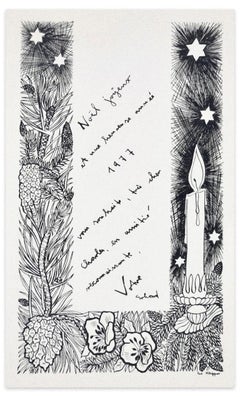 Noël joyeux
et une heureuse année
1977
vous souhaite, très cher
Charles, en amitié
reconnaissante.
Votre